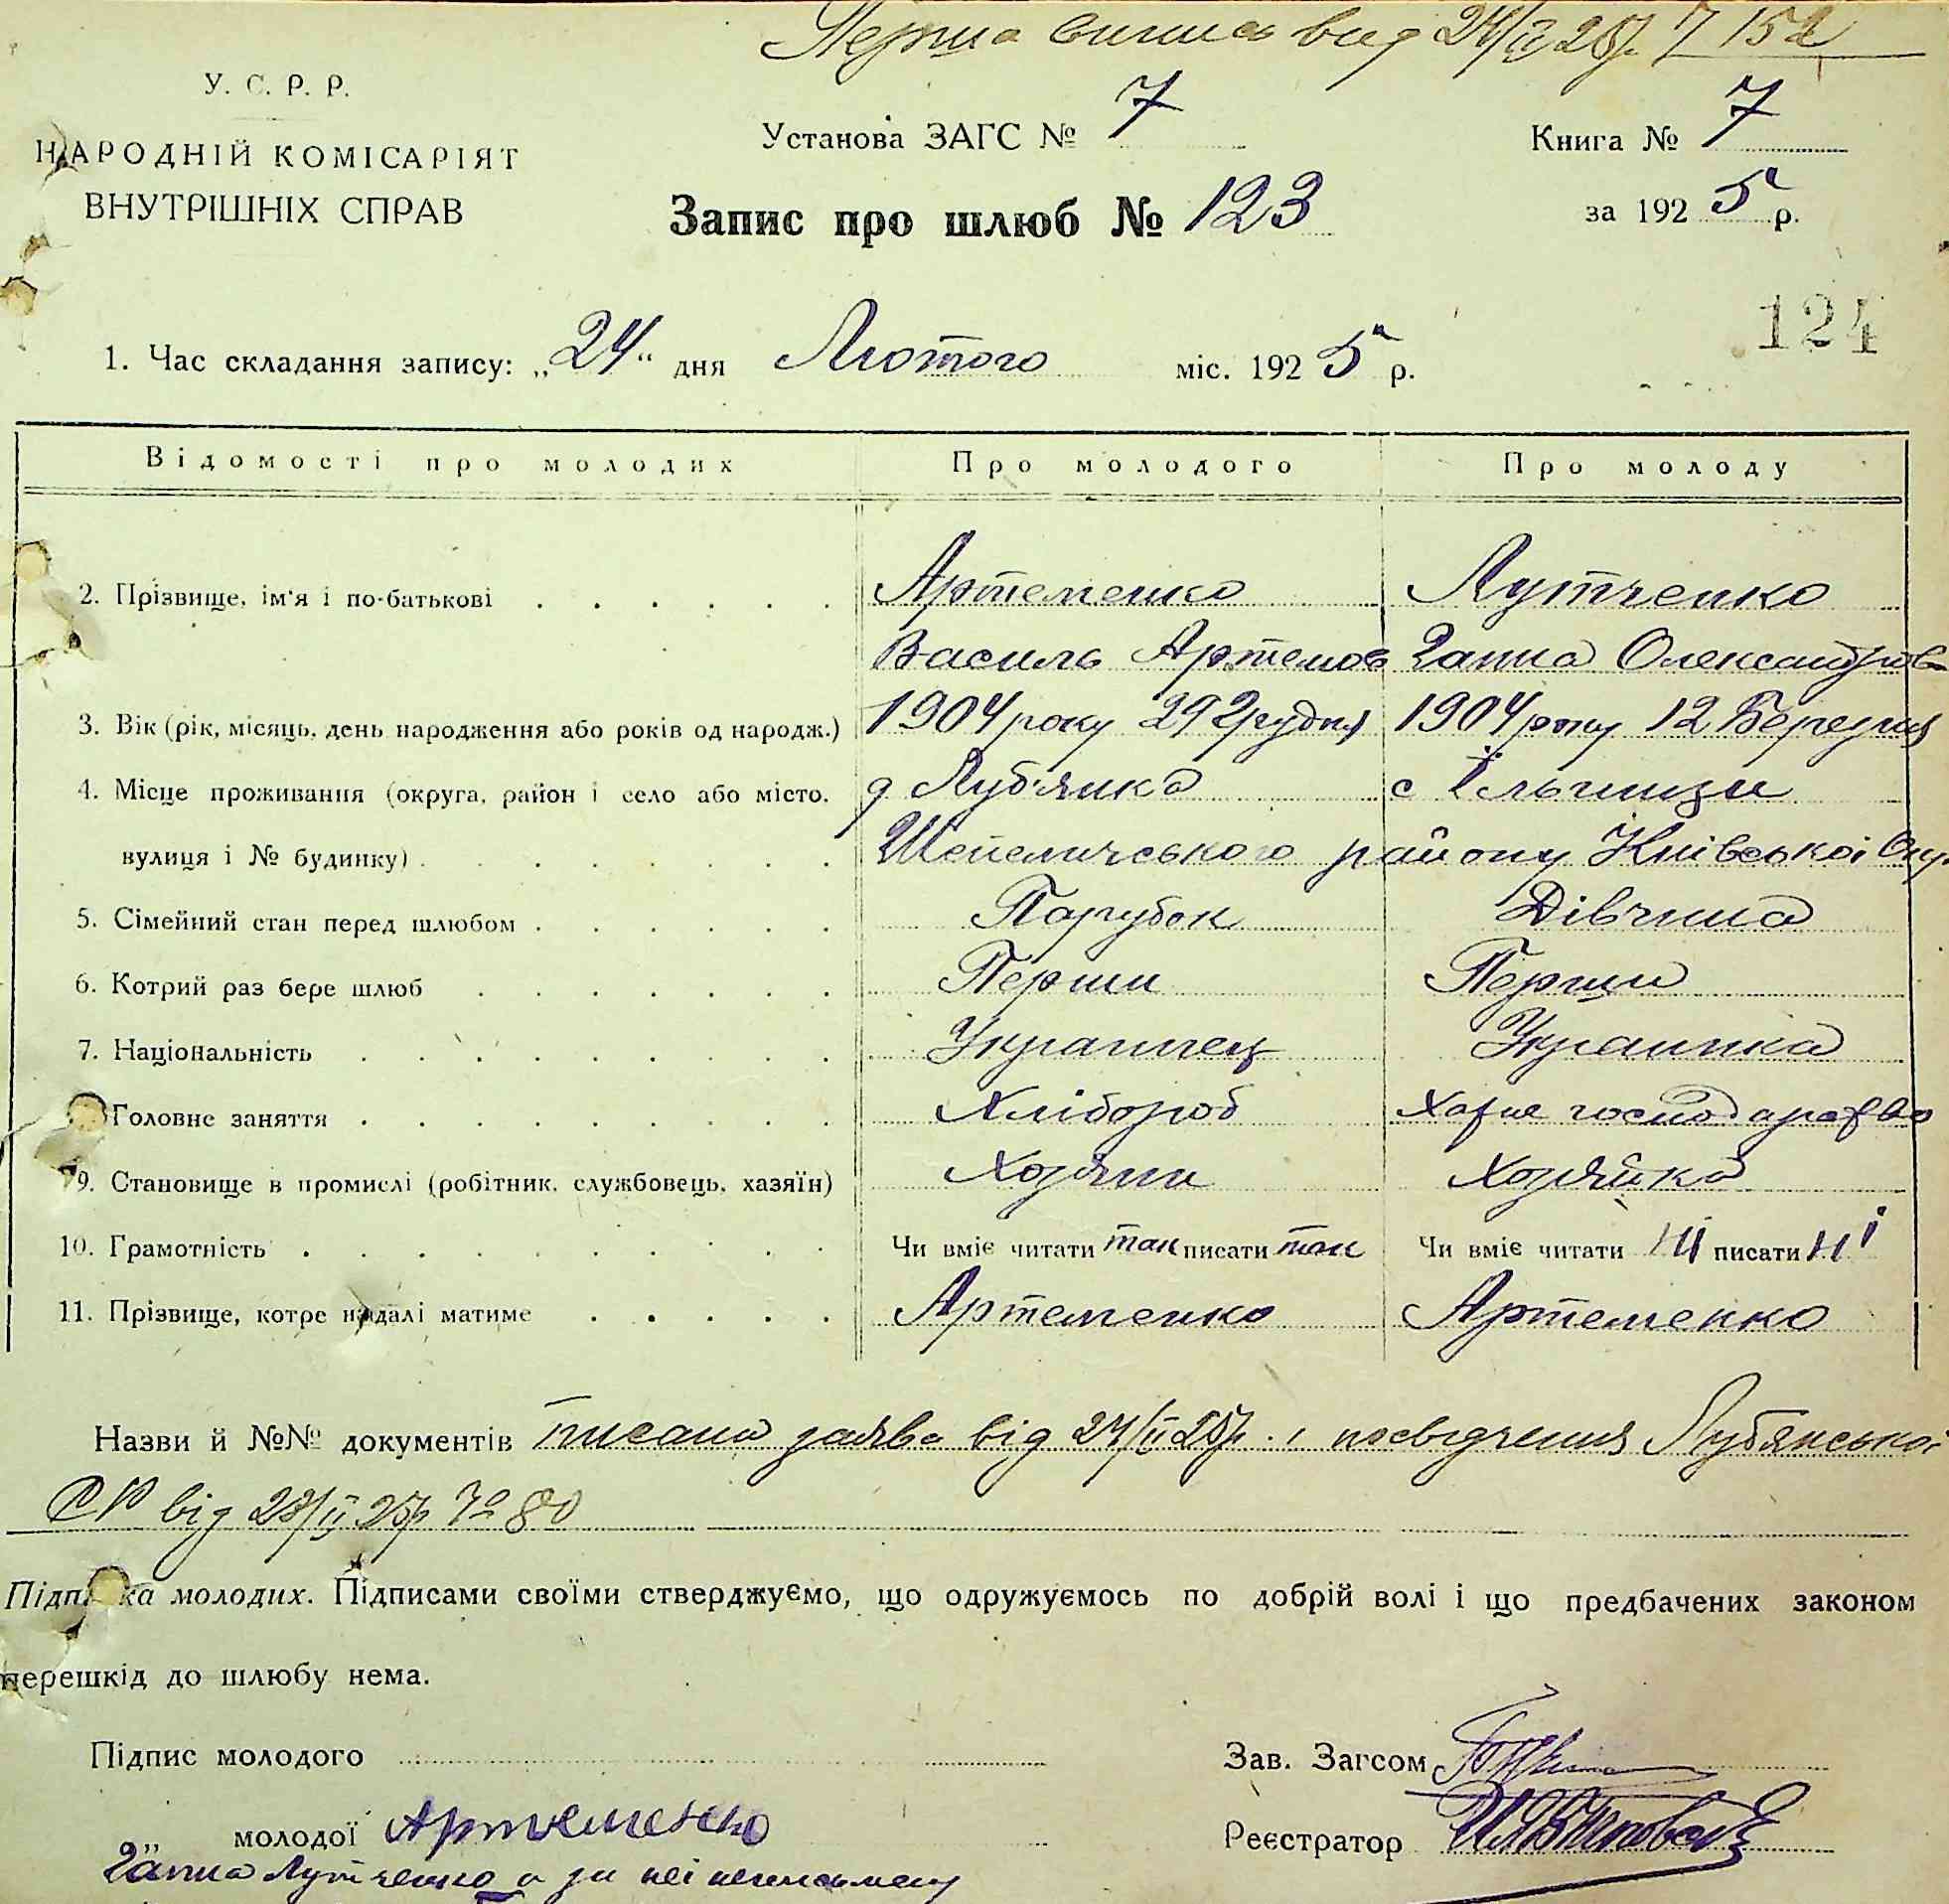 Перша виписа від 24/II 25р. № 152
У. С. Р. Р.
НАРОДНІЙ КОМІСАРІЯТ
ВНУТРІШНІХ СПРАВ
Установа ЗАГС № 7
Книга № 7
Запис про шлюб № 123
за 1925 р.
124
1. Час складання запису: „24“ дня Лютого міс. 1925 р.
Відомості про молодих Про молодого Про молоду
2. Прізвище, ім'я і по-батькові Артеменко Лутченко
Василь Артемов Ганна Олександров
3. Вік (рік, місяць, день народження або років од народж.) 1904 року 29 Грудня 1904 року 12 Березня
4. Місце проживання (округа, район і село або місто, д Луб'янка с Ільинци
вулиця і № будинку) Шепелицського району Київської Окр.
5. Сімейний стан перед шлюбом Парубок Дівчина
6. Котрий раз бере шлюб Перши Перши
7. Національність Украинец Украинка
Головне заняття Хлібороб Хатне господарство
9. Становище в промислі (робітник, службовець, хазяїн) Хозяин Хозяйка
10. Грамотність Чи вміє читати так писати так Чи вміє читати ні писати ні
11. Прізвище, котре надалі матиме Артеменко Артеменко
Назви й №№ документів писана заява від 24/II 25р. і посвідчення Лубянської
СР від 23/II 25р № 80
Підписка молодих. Підписами своїми стверджуємо, що одружуємось по добрій волі і що предбачених законом
перешкід до шлюбу нема.
Підпис молодого
Зав. Загсом
„ молодої Артеменко
Реєстратор
Ганна Лутченко а за неі неписьмену